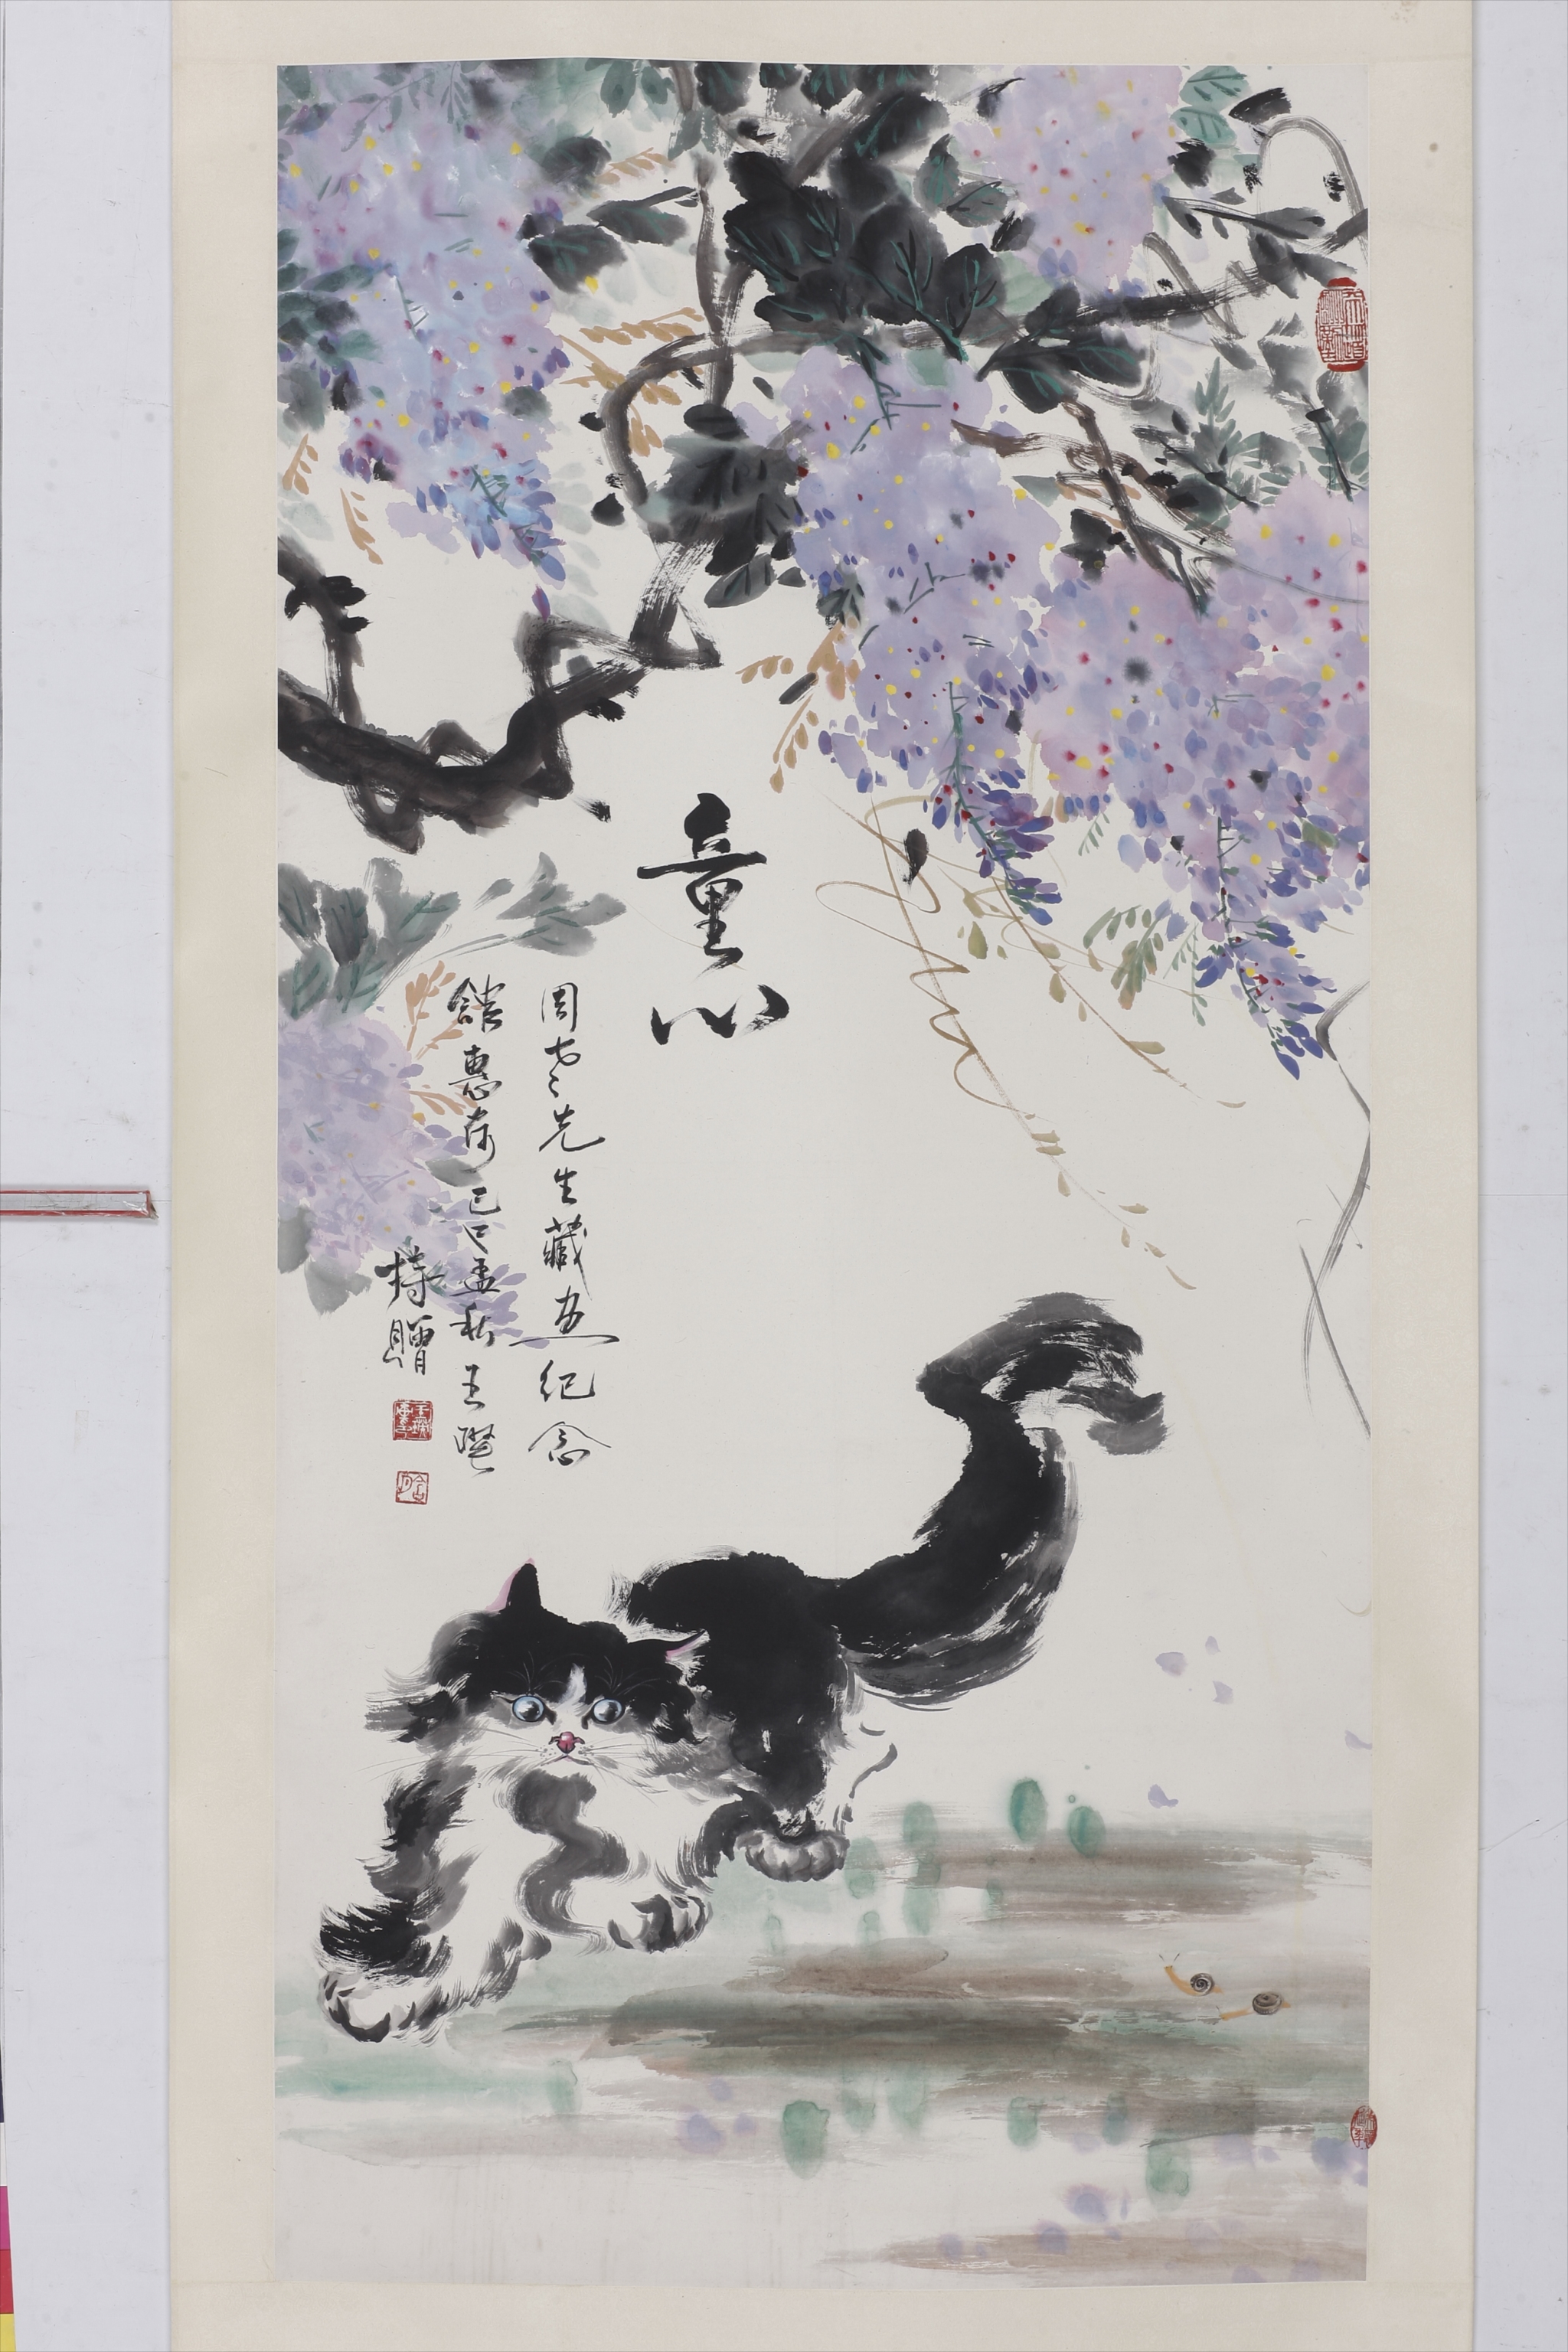 童心
周先生藏画纪念
館惠存己巳孟秋王
特贈